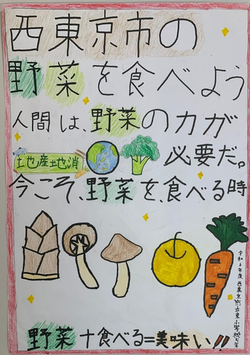 西東京市の
野菜を食べよう
人間は、野菜の力が
地産地消
必要だ。
今こそ、野菜を、食べる時
野菜+食べる=美味い!!